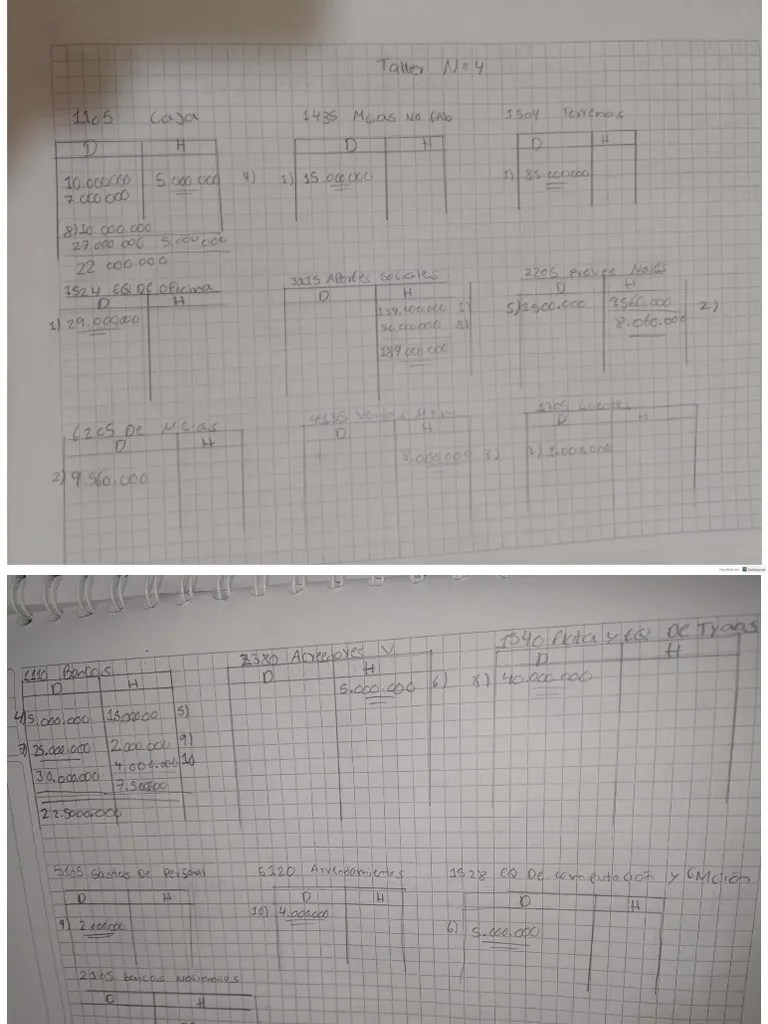 Taller N=4
1105 Caja
D H
10.000.000 5.000.000 4)
7.000.000
8)10.000.000
27.000.000 5.000.000
22 000.000
1435 Mcias No fab
D H
1) 15.000.000
1504 Terrenos
D H
1) 85.000.000
1524 EQ DE Oficina
D H
1) 29.000.000
3115 Aportes Sociales
D H
1)
50.000.000 8)
189.000.000
2205
D H
5) 1500.000 9560.000 2)
8.060.000
6205 De Mcias
D H
2) 9.560.000
4135 Ventas
D H
8.000.000 3)
1305 Clientes
D H
3) 1.000.000
1110 Bancos
D H
4) 5.000.000 1500000 5)
7) 25.000.000 2.000.000 9)
30.000.000 4,000.000 10
7.500.000
22.5000.000
2380 Acreedores V
D H
5.000.000 6)
1540 Flota y EQ De Trans
D H
8) 40.000.000
5105 Gastos De Personal
D H
9) 2.000.000
5120 Arrendamientos
D H
10) 4.000.000
1528 EQ De computacion y CMcion
D H
6) 5.000.000
2105 Bancos Nacionales
D H